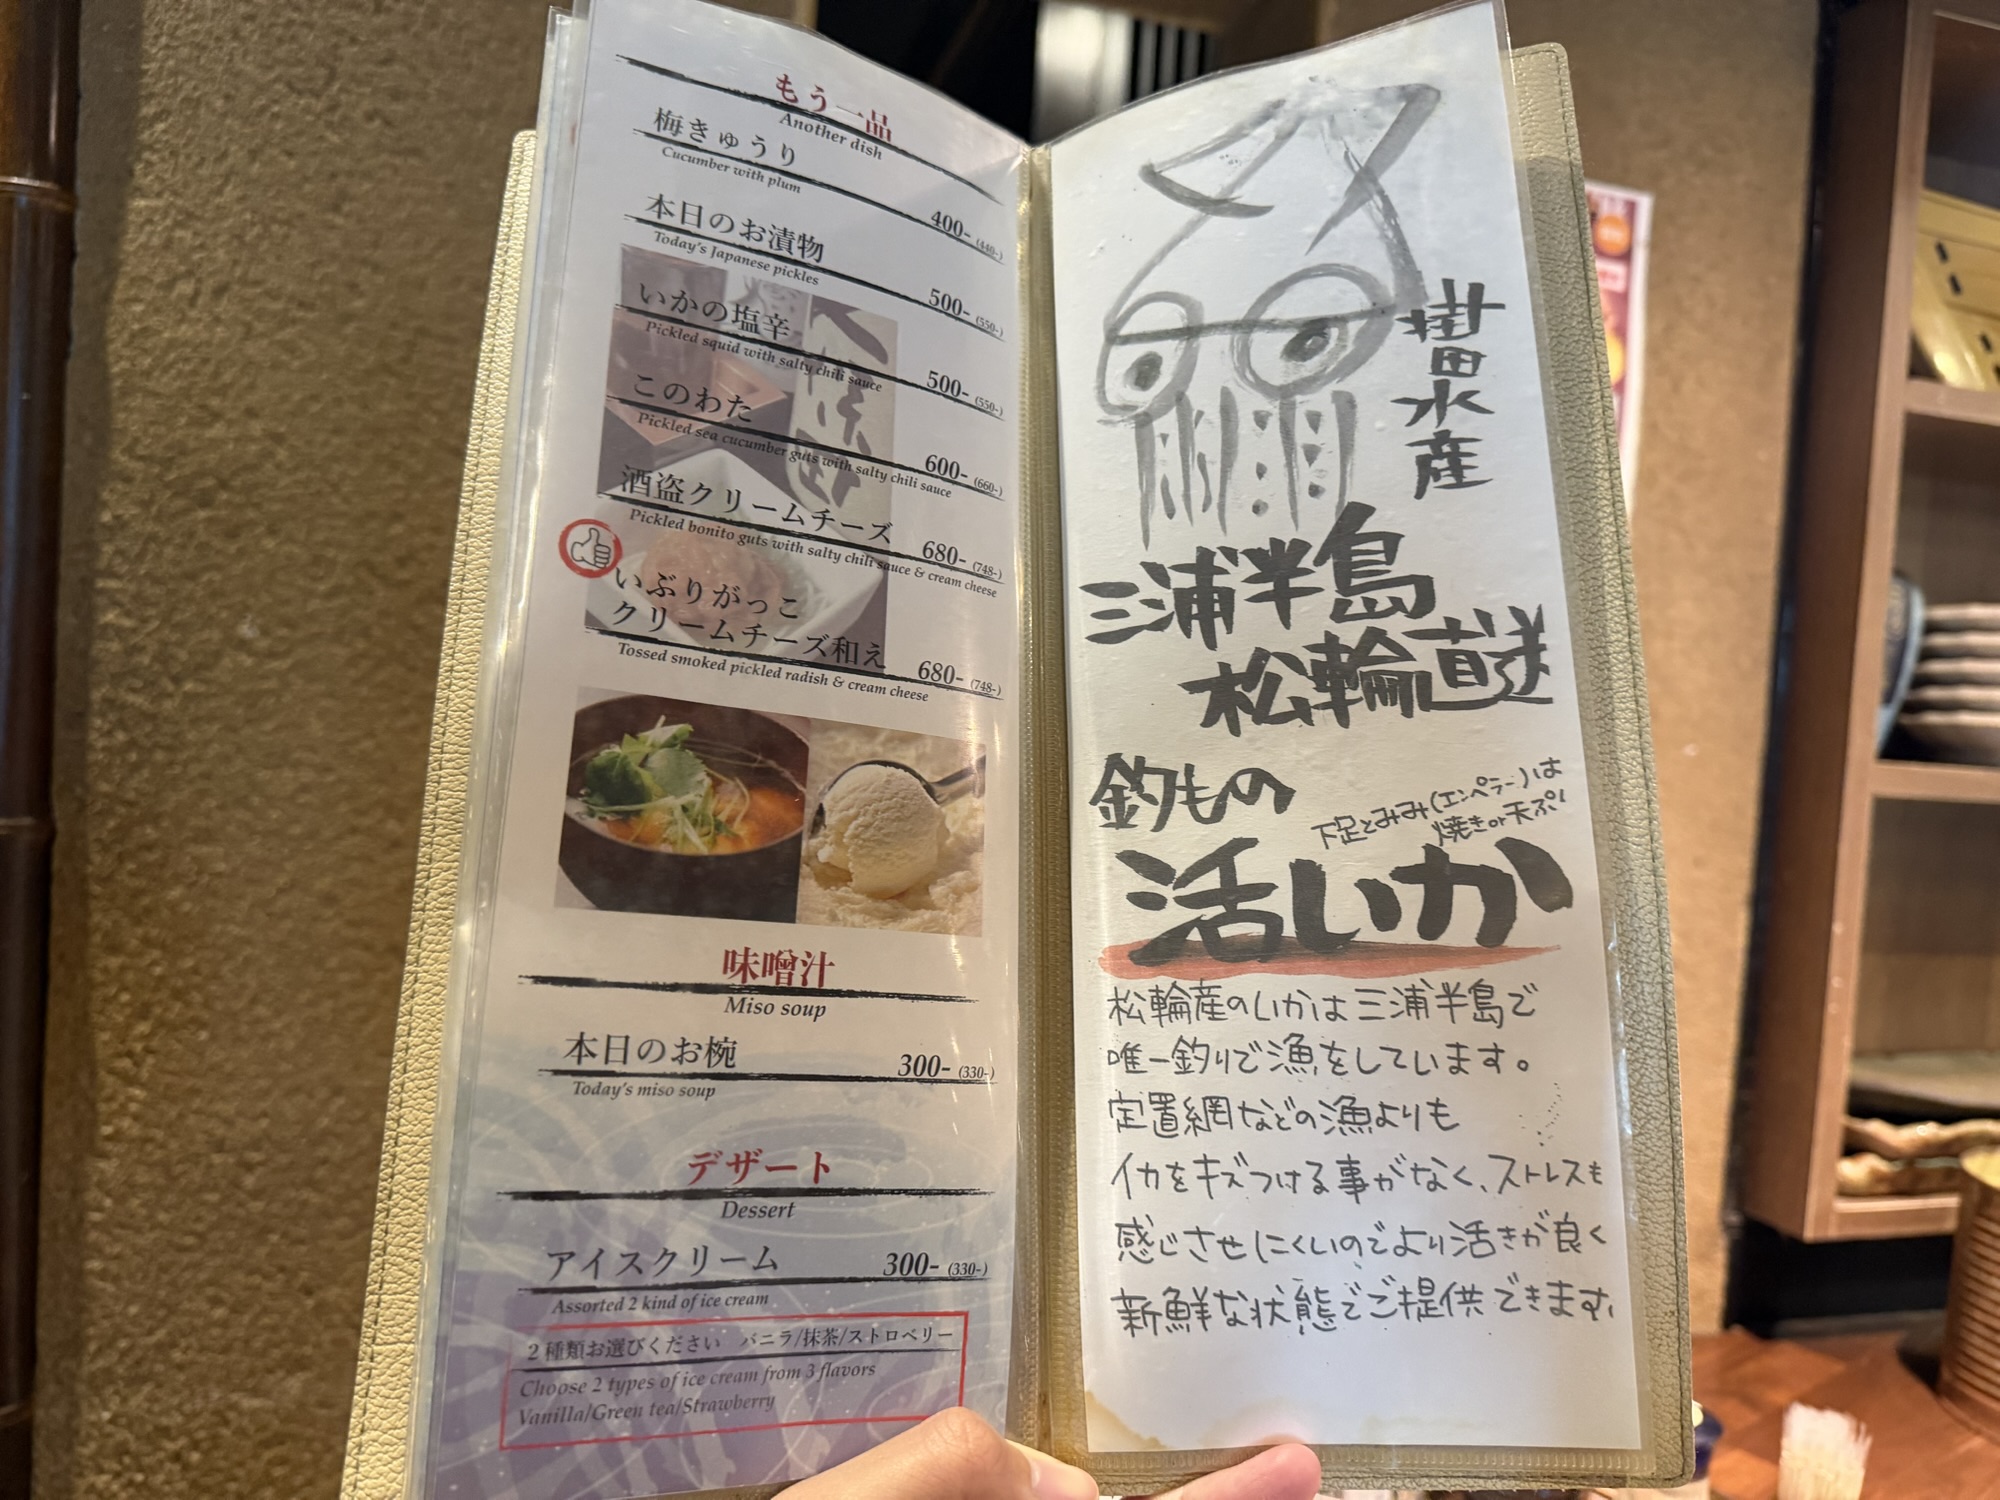 もう一品
Another dish
梅きゅうり
Cucumber with plum
400- (440-)
本日のお漬物
Today's Japanese pickles
500- (550-)
いかの塩辛
Pickled squid with salty chili sauce
500- (550-)
このわた
Pickled sea cucumber guts with salty chili sauce
600- (660-)
酒盗クリームチーズ
Pickled bonito guts with salty chili sauce & cream cheese
680- (748-)
いぶりがっこ
クリームチーズ和え
Tossed smoked pickled radish & cream cheese
680- (748-)
味噌汁
Miso soup
本日のお椀
300- (330-)
Today's miso soup
デザート
Dessert
アイスクリーム
300- (330-)
Assorted 2 kind of ice cream
2種類お選びください　バニラ/抹茶/ストロベリー
Choose 2 types of ice cream from 3 flavors
Vanilla/Green tea/Strawberry
水産
三浦半島
松輪直送
釣もの
下足とみみ(エンペラー)は
焼きor天ぷら
活いか
松輪産のいかは三浦半島で
唯一釣りで漁をしています。
定置網などの漁よりも
イカをキズつける事がなく、ストレスも
感じさせにくいのでより活きが良く
新鮮な状態でご提供できます。